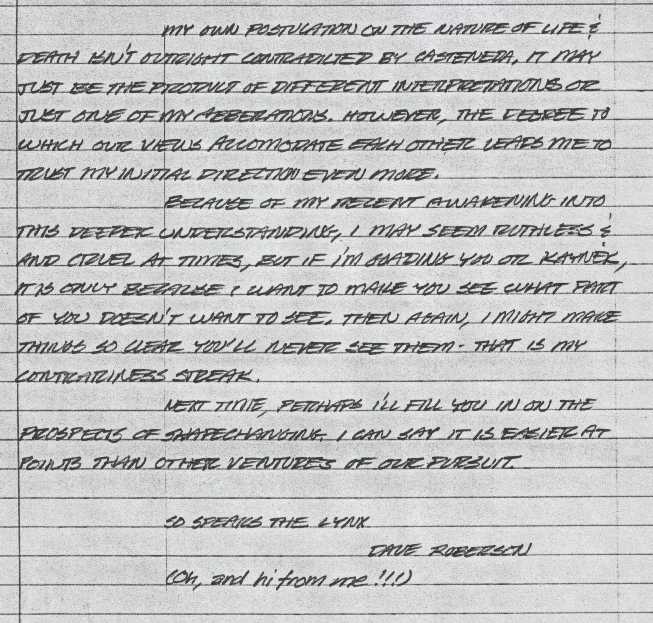 MY OWN POSTULATION ON THE NATURE OF LIFE &
DEATH ISN'T OUTRIGHT CONTRADICTED BY CASTENEDA, IT MAY
JUST BE THE PRODUCT OF DIFFERENT INTERPRETATIONS OR
JUST ONE OF MY ABBERATIONS. HOWEVER, THE DEGREE TO
WHICH OUR VIEWS ACCOMODATE EACH OTHER LEADS ME TO
TRUST MY INITIAL DIRECTION EVEN MORE.
BECAUSE OF MY RECENT AWAKENING INTO
THIS DEEPER UNDERSTANDING, I MAY SEEM RUTHLESS &
AND CRUEL AT TIMES, BUT IF I'M GOADING YOU OR KAYNEK,
IT IS ONLY BECAUSE I WANT TO MAKE YOU SEE WHAT PART
OF YOU DOESN'T WANT TO SEE. THEN AGAIN, I MIGHT MAKE
THINGS SO CLEAR YOU'LL NEVER SEE THEM - THAT IS MY
CONTRARINESS STREAK.
NEXT TIME, PERHAPS I'LL FILL YOU IN ON THE
PROSPECTS OF SHAPECHANGING. I CAN SAY IT IS EASIER AT
POINTS THAN OTHER VENTURES OF OUR PURSUIT.
SO SPEAKS THE LYNX
DAVE ROBERSON
(Oh, and hi from me !!!)